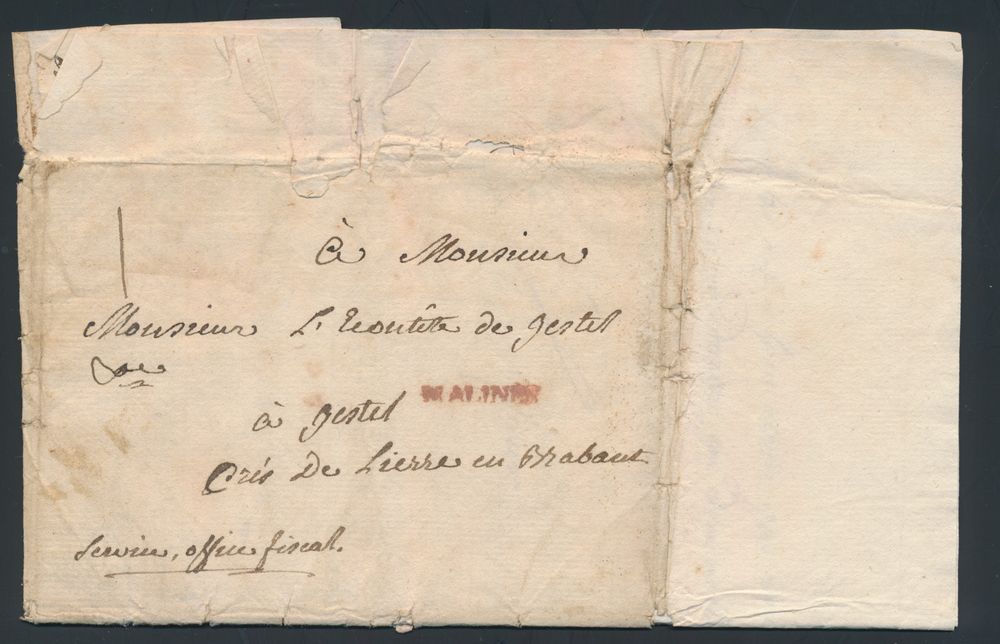 à Monsieur
Monsieur L'Ecoutête de gestel
à gestel
MALINES
Près De Lierre en Brabant
Service, office fiscal.